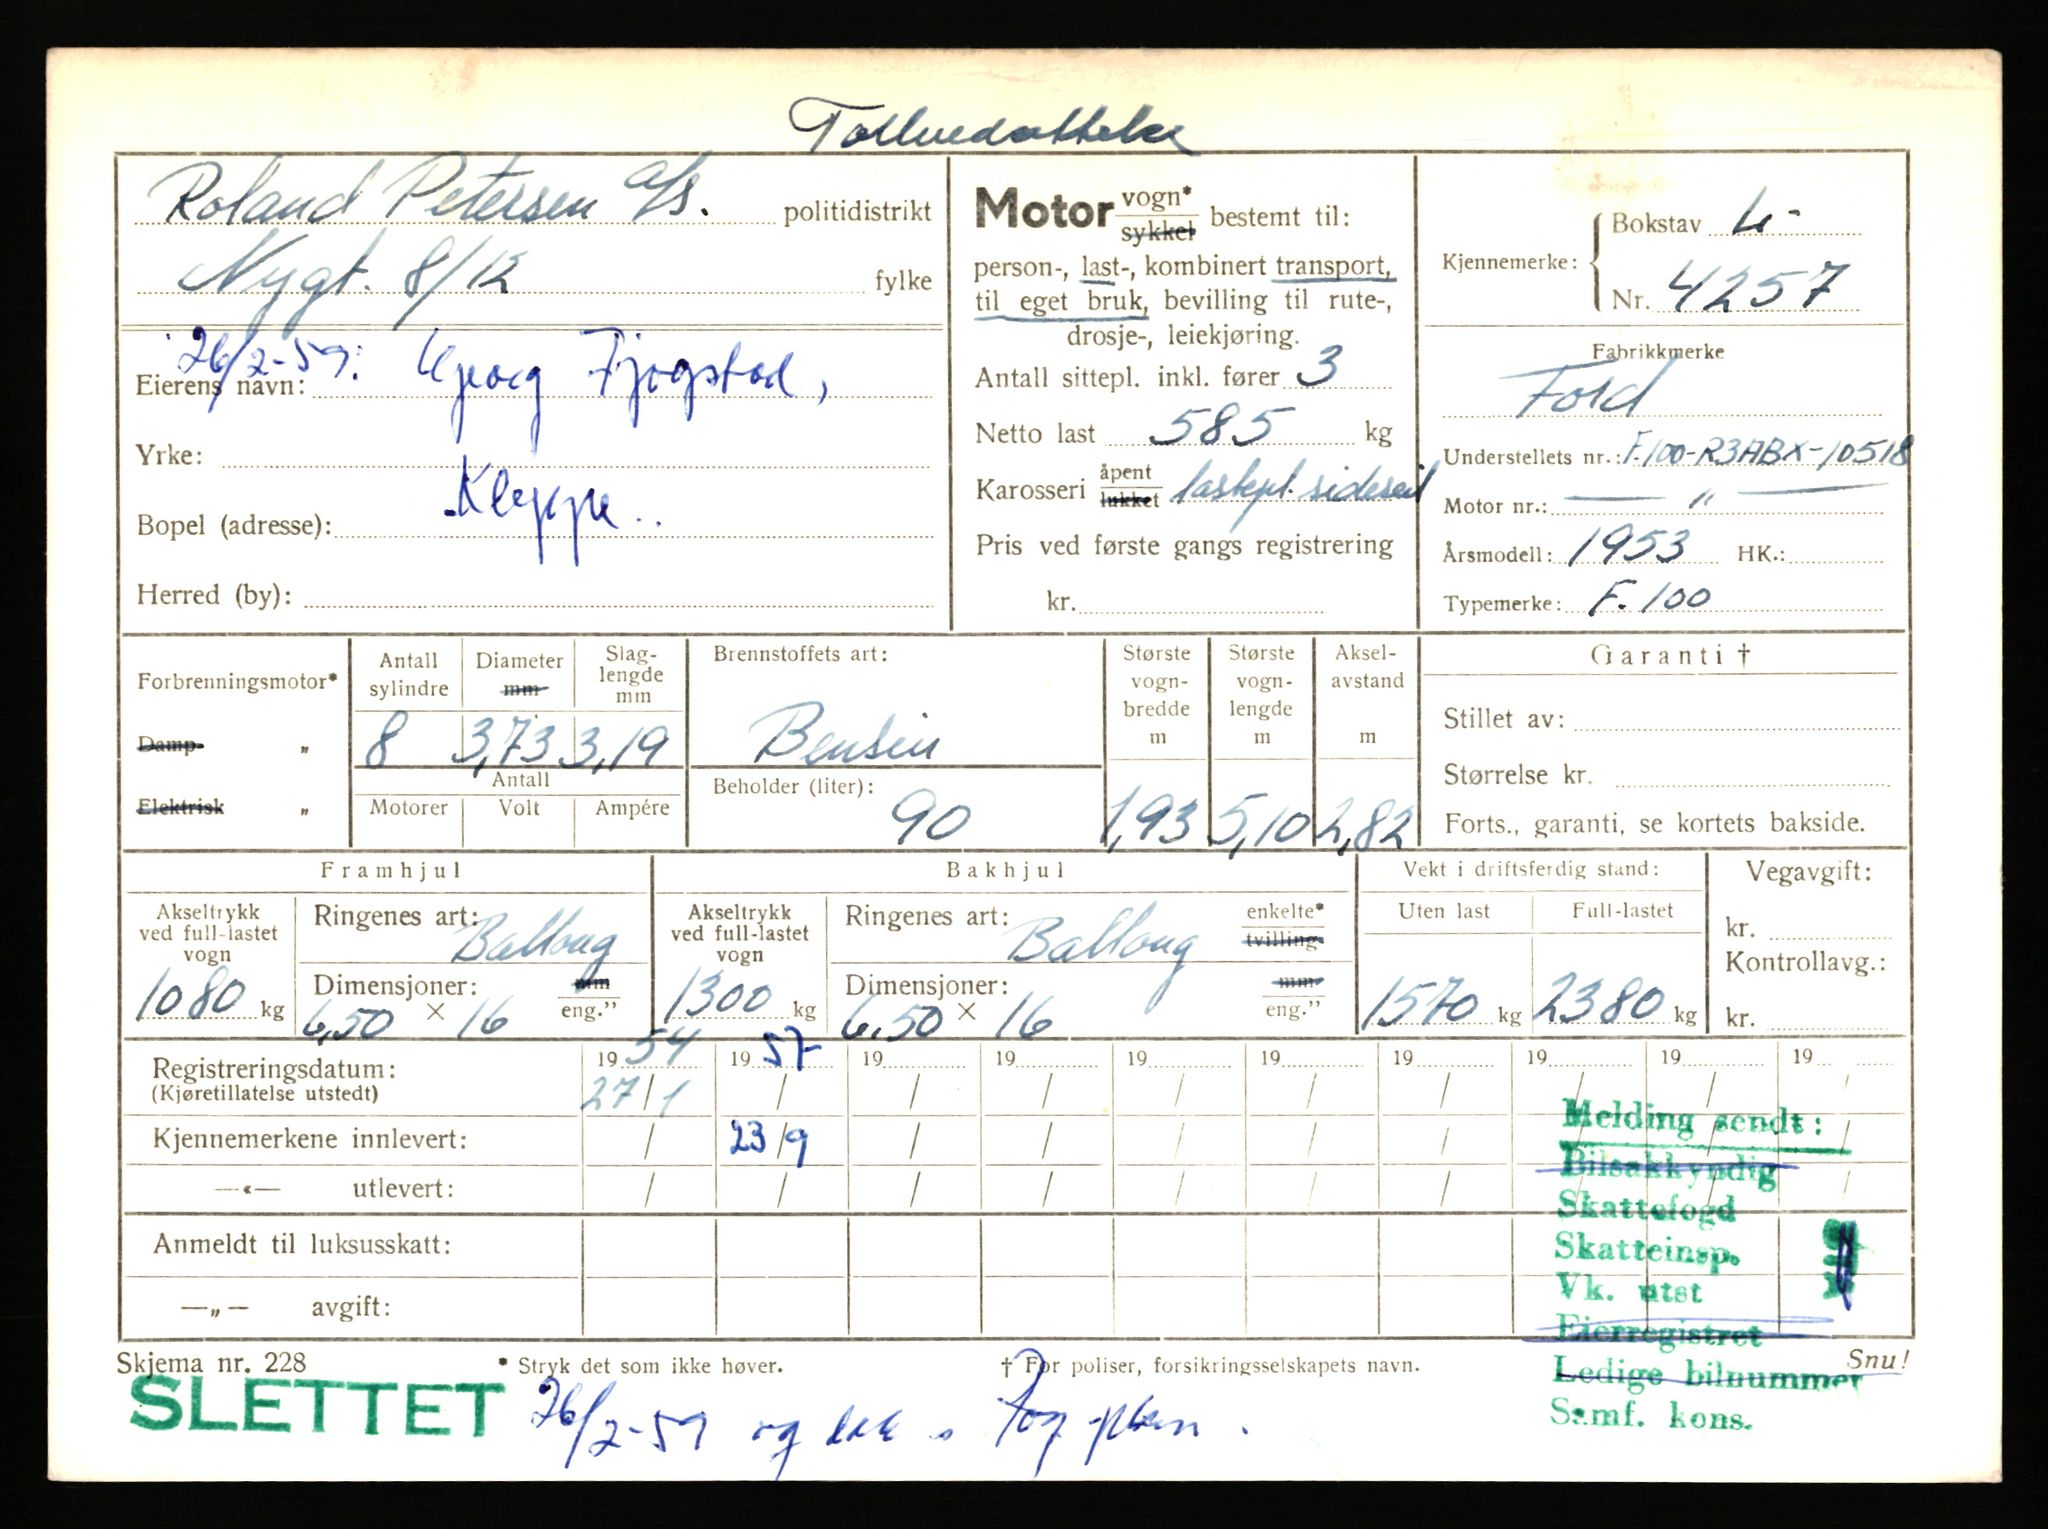 Tollvedattelse
Roland Petersen a/s. politidistrikt
Nygt. 8/12 fylke
26/2-59: Fjogstad,
Eierens navn:
Yrke:
Kleppe
Bopel (adresse):
Herred (by):
Motor vogn* sykkel bestemt til:
person-, last-, kombinert transport,
til eget bruk, bevilling til rute-,
drosje-, leiekjøring.
Antall sittepl. inkl. fører 3
Netto last 585 kg
Karosseri åpent lukket lastepl. sideseil
Pris ved første gangs registrering
kr.
Kjennemerke: Bokstav L-
Nr. 4257
Fabrikkmerke
Ford
Understellets nr.: F.100-R3ABX-10518
Motor nr.: — „ —
Årsmodell: 1953 HK.:
Typemerke: F. 100
Forbrenningsmotor*
Damp- „
Elektrisk „
Antall sylindre 8
Diameter mm 3,73
Slaglengde mm 3,19
Antall
Motorer Volt Ampére
Brennstoffets art:
Bensin
Beholder (liter):
90
Største vognbredde m 1,93
Største vognlengde m 5,10
Akselavstand m 2,82
Garanti †
Stillet av:
Størrelse kr.
Forts., garanti, se kortets bakside.
Framhjul
Akseltrykk ved full-lastet vogn
1080 kg
Ringenes art: Ballong
Dimensjoner: mm
6,50 × 16 eng."
Bakhjul
Akseltrykk ved full-lastet vogn
1300 kg
Ringenes art: Ballong enkelte* tvilling
Dimensjoner: mm
6.50 × 16 eng."
Vekt i driftsferdig stand:
Uten last Full-lastet
1570 kg 2380 kg
Vegavgift:
kr.
Kontrollavg.:
kr.
Registreringsdatum: 1954 1957 19 19 19 19 19 19 19 19
(Kjøretillatelse utstedt) 27/1 / / / / / / / / /
Kjennemerkene innlevert: / 23/9 / / / / / / / /
—«— utlevert: / / / / / / / / / /
Anmeldt til luksusskatt:
—„— avgift:
Melding sendt:
Bilsakkyndig
Skattefogd
Skatteinsp.
Vk. utst
Eierregistret
Ledige bilnummer
Samf. kons.
Skjema nr. 228 * Stryk det som ikke høver. † For poliser, forsikringsselskapets navn. Snu!
SLETTET 26/2-59 og